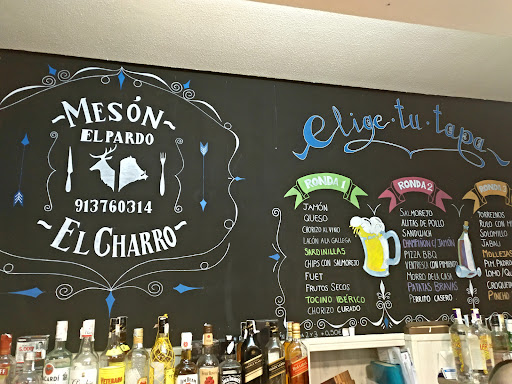 ~MESÓN~
EL PARDO
913760314
~EL CHARRO~
elige·tu·tapa
RONDA 1
JAMÓN
QUESO
CHORIZO AL VINO
LACÓN A LA GALLEGA
SARDINILLAS
CHIPS CON SALMOREJO
FUET
FRUTOS SECOS
TOCINO IBÉRICO
CHORIZO CURADO
RONDA 2
SALMOREJO
ALITAS DE POLLO
SANDWICH
CHAMPIÑON C/ JAMÓN
PIZZA BBQ
VENTRESCA CON PIMIENTO
MORRO DE LA CASA
PATATAS BRAVAS
PEPITO CASERO
RONDA
TORREZNOS
PULPO CON
SOLOMILLO
JABALI
MOLLEJAS
PIM. PADRÓN
LOMO
CROQUETAS
PANCHO